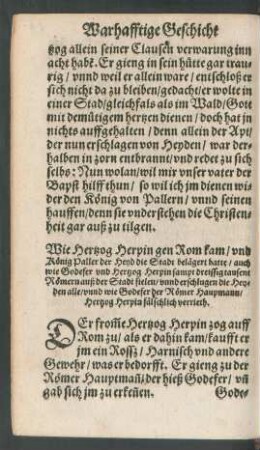 Warhafftige Geschicht
tzog allein seiner Clausen verwarung inn
acht habt. Er gieng in sein hütte gar trau-
rig / vnnd weil er allein ware / entschloß er
sich nicht da zu bleiben / gedacht / er wolte in
einer Stad / gleichfals als im Wald / Gott
mit demütigem hertzen dienen / doch hat jn
nichts auffgehalten / denn allein der Apt /
der nun erschlagen von Heyden / war der-
halben in zorn entbrannt / vnd redet zu sich
selbs: Nun wolan / wil mir vnser vater der
Bapst hilff thun / so wil ich jm dienen wi-
der den König von Pallern / vnnd seinen
hauffen / denn sie vnderstehen die Christen-
heit gar auß zu tilgen.
Wie Hertzog Herpin gen Rom kam / vnd
König Paller der Heyd die Stadt belägert hatte / auch
wie Godefer vnd Hertzog Herpin sampt dreissig tausent
Römern auß der Stadt fielen / vnnd erschlugen die Hey-
den alle / vnnd wie Godefer der Römer Hauptmann /
Hertzog Herpin fälschlich verrieth.
DEr from̃e Hertzog Herpin zog auff
Rom zu / als er dahin kam / kaufft er
jm ein Rossz / Harnisch vnd andere
Gewehr / was er bedorfft. Er gieng zu der
Römer Hauptmañ / der hieß Godefer / vñ
gab sich jm zu erkeñen.
Gode-